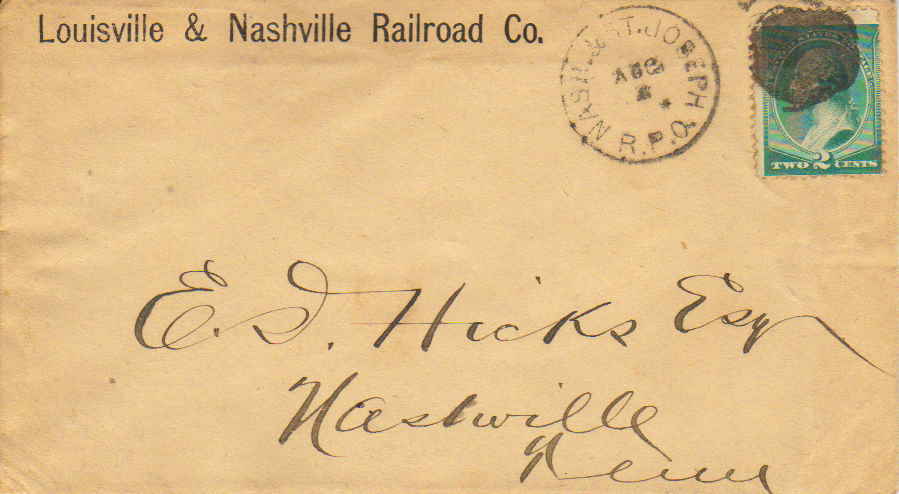 Louisville & Nashville Railroad Co.
NASH. & ST. JOSEPH
AUG
R.P.O.
TWO 2 CENTS
E. D. Hicks Esq
Nashville
Tenn